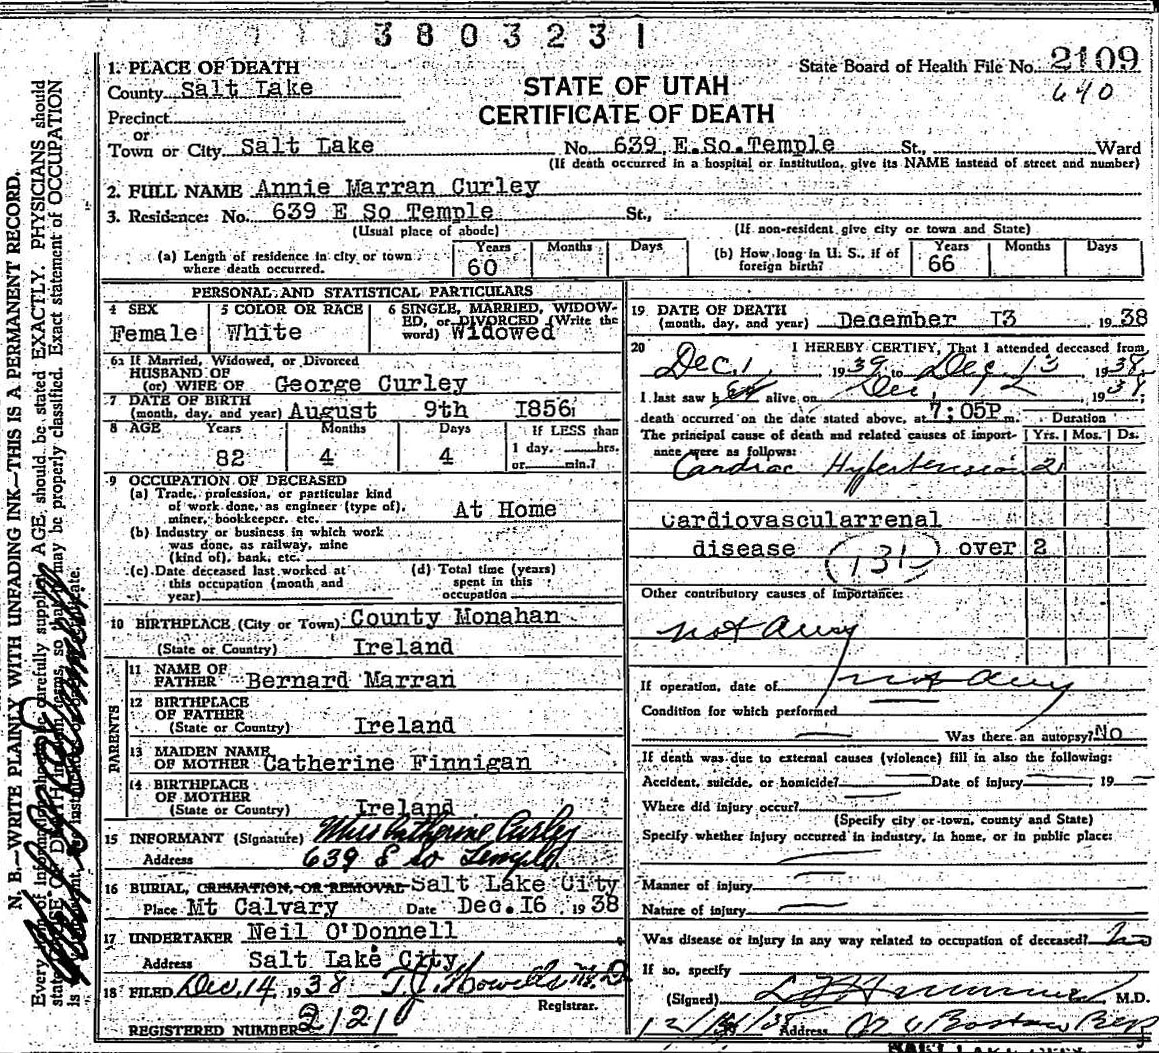 3803231
1. PLACE OF DEATH
County Salt Lake
Precinct
or
Town or City Salt Lake
STATE OF UTAH
CERTIFICATE OF DEATH
State Board of Health File No. 2109
640
No. 639 E.So.Temple St., Ward
(If death occurred in a hospital or institution, give its NAME instead of street and number)
2. FULL NAME Annie Marran Curley
3. Residence: No. 639 E So Temple St.,
(Usual place of abode) (If non-resident give city or town and State)
(a) Length of residence in city or town where death occurred. Years 60 Months Days
(b) How long in U. S., if of foreign birth? Years 66 Months Days
PERSONAL AND STATISTICAL PARTICULARS
4 SEX Female
5 COLOR OR RACE White
6 SINGLE, MARRIED, WIDOWED, or DIVORCED (Write the word) Widowed
6a If Married, Widowed, or Divorced
HUSBAND OF
(or) WIFE OF George Curley
7 DATE OF BIRTH
(month, day, and year) August 9th 1856
8 AGE Years Months Days If LESS than
82 4 4 1 day, hrs.
or min.?
9 OCCUPATION OF DECEASED
(a) Trade, profession, or particular kind
of work done, as engineer (type of),
miner, bookkeeper, etc. At Home
(b) Industry or business in which work
was done, as railway, mine
(kind of), bank, etc.
(c) Date deceased last worked at
this occupation (month and
year)
(d) Total time (years)
spent in this
occupation
10 BIRTHPLACE (City or Town) County Monahan
(State or Country) Ireland
PARENTS
11 NAME OF
FATHER Bernard Marran
12 BIRTHPLACE
OF FATHER
(State or Country) Ireland
13 MAIDEN NAME
OF MOTHER Catherine Finnigan
14 BIRTHPLACE
OF MOTHER
(State or Country) Ireland
15 INFORMANT (Signature) Miss Catherine Curley
Address 639 E so Temple
16 BURIAL, CREMATION, OR REMOVAL Salt Lake City
Place Mt Calvary Date Dec.16 1938
17 UNDERTAKER Neil O'Donnell
Address Salt Lake City
18 FILED Dec. 14, 1938 T.J. Howells M.D
Registrar.
REGISTERED NUMBER 2121
19 DATE OF DEATH
(month, day, and year) December 13 1938
20 I HEREBY CERTIFY, That I attended deceased from
Dec. 1, 1939 to Dec. 13, 1938.
I last saw her alive on Dec, 1938;
death occurred on the date stated above, at 7:05P m. Duration
The principal cause of death and related causes of importance were as follows: Yrs. Mos. Ds.
Cardiac Hypertension 2
Cardiovascularrenal
disease 131 over 2
Other contributory causes of importance:
not any
If operation, date of not any
Condition for which performed
Was there an autopsy? No
If death was due to external causes (violence) fill in also the following:
Accident, suicide, or homicide? Date of injury 19
Where did injury occur?
(Specify city or town, county and State)
Specify whether injury occurred in industry, in home, or in public place:
Manner of injury
Nature of injury
Was disease or injury in any way related to occupation of deceased? No
If so, specify
(Signed) M.D.
Address Boston Bldg
N. B.—WRITE PLAINLY WITH UNFADING INK—THIS IS A PERMANENT RECORD.
Every item of information should be carefully supplied. AGE should be stated EXACTLY. PHYSICIANS should
state CAUSE OF DEATH in plain terms, so that it may be properly classified. Exact statement of OCCUPATION
is